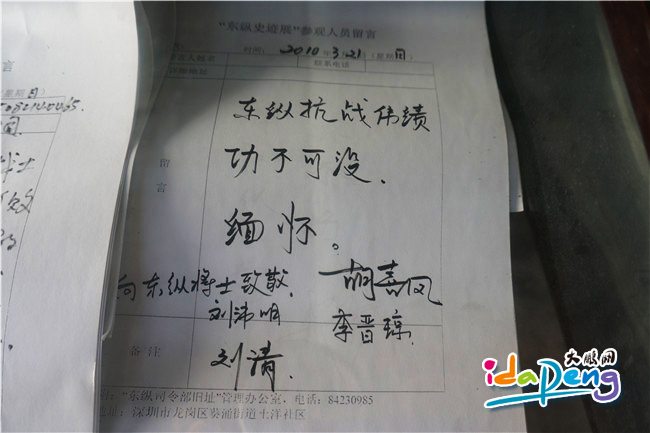 "东纵史迹展"参观人员留言
时间: 2010年3月21日(星期日)
联系电话
留言
东纵抗战伟绩
功不可没、
缅怀。
向东纵将士致敬、
胡嘉风
刘沛明
李晋琼
备注
刘清
"东纵司令部旧址"管理办公室,电话:84230985
地址:深圳市龙岗区葵涌街道土洋社区
言
(星期日)
大鹏网
idapeng